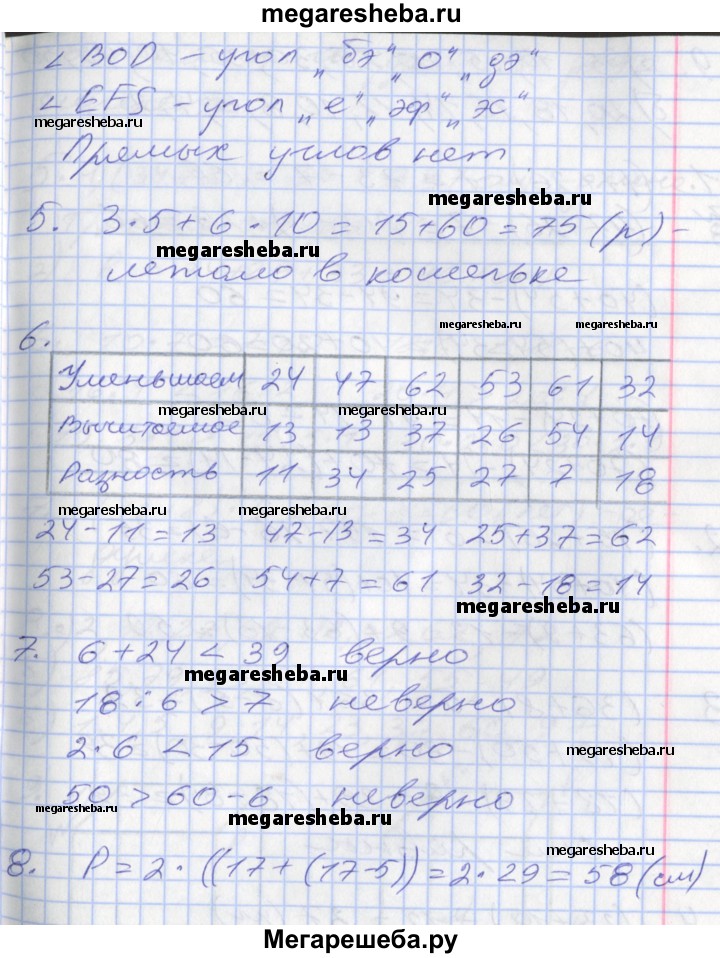 megaresheba.ru
∠ BOD – угол „бэ“ „О“ „дэ“
∠ EFS – угол „е“ „эф“ „эс“
megaresheba.ru megaresheba.ru
Прямых углов нет.
megaresheba.ru
5. 3·5+6·10=15+60=75(р)–
megaresheba.ru
лежало в кошельке
megaresheba.ru megaresheba.ru
6.
Уменьшаем 24 47 62 53 61 32
megaresheba.ru megaresheba.ru
Вычитаемое 13 13 37 26 54 14
Разность 11 34 25 27 7 18
megaresheba.ru megaresheba.ru megaresheba.ru
24–11=13 47–13=34 25+37=62
53–27=26 54+7=61 32–18=14
megaresheba.ru
7. 6+24<39 верно
megaresheba.ru
18:6>7 неверно
2·6<15 верно
megaresheba.ru
50>60–6 неверно
megaresheba.ru megaresheba.ru
megaresheba.ru
8. P=2·((17+(17-5))=2·29=58(см)
megaresheba.ru megaresheba.ru
Мегарешеба.ру